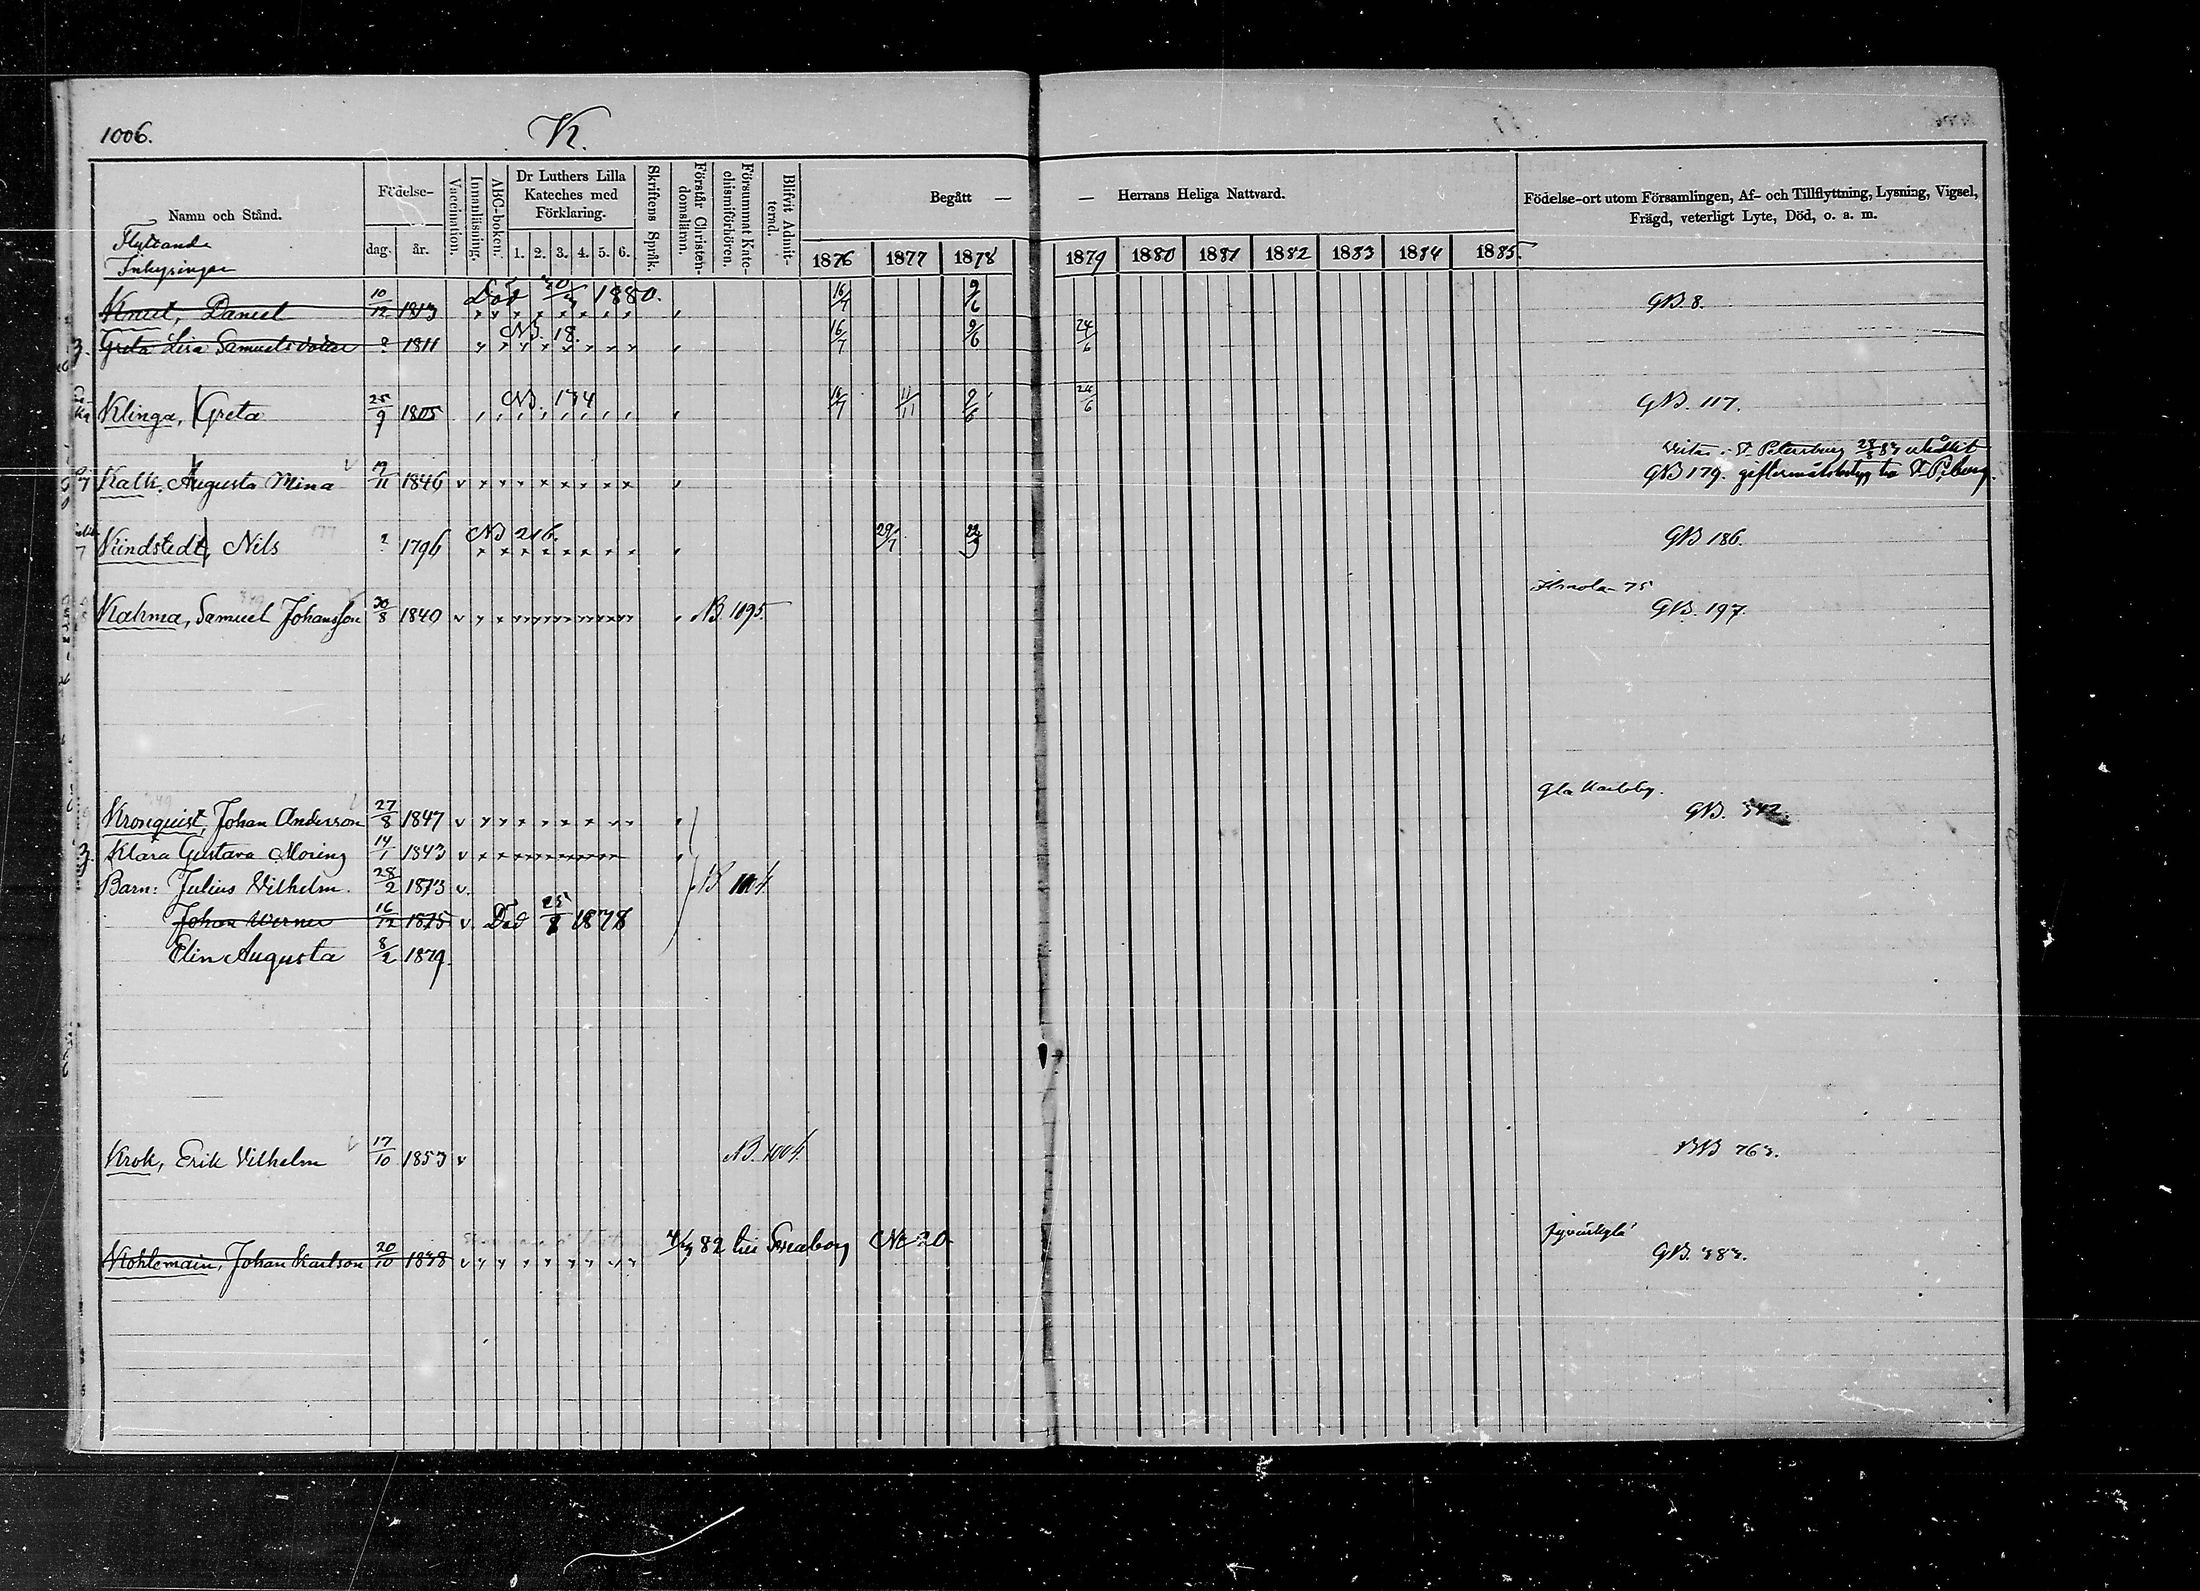 1006.
K.
Namn och Stånd.
Födelse-
dag.
år.
Vaccination.
Innanläsning.
ABC-boken.
Dr Luthers Lilla Kateches med Förklaring.
1. 2. 3. 4. 5. 6.
Skriftens Språk.
Förstår Christendomslärn.
Försummat Katechismiförhören.
Blifvit Admitterad.
Begått — — Herrans Heliga Nattvard.
1876 1877 1878 1879 1880 1881 1882 1883 1884 1885.
Födelse-ort utom Församlingen, Af- och Tillflyttning, Lysning, Vigsel,
Frägd, veterligt Lyte, Död, o. a. m.
Flyttande
Inhysingar
Knut, Daniel 10/12 1813 Död 1880. 16/7 9/6 GB. 8.
Greta Lisa Samuelsdotter ? 1811 NB. 18. 16/7 9/6 24/6
Klinga, Greta 25/9 1805 NB. 174 16/7 11/11 9/6 24/6 GB. 117.
St Petersburg
Kalk, Augusta Mina 1846 GB 179.
Kindstedt, Nils ? 1796 NB 216. 29/7 GB 186.
75
Kahma, Samuel Johansson 30/8 1840 NB. 1095. GB. 197.
Gla Karleby.
Kronquist, Johan Anderson 27/8 1847 GB. 342.
Klara Gustava Moring 14/1 1843
Barn: Julius Vilhelm. 28/2 1873
Johan Werner 16/12 1875 Död 1878
Elin Augusta 8/2 1879.
Krok, Erik Vilhelm 17/10 1853 NB. 1004. BB 763.
82 till Sveaborg No 20 Jyväskylä
Kohlemain, Johan Karlson 20/10 1838 GB. 383.